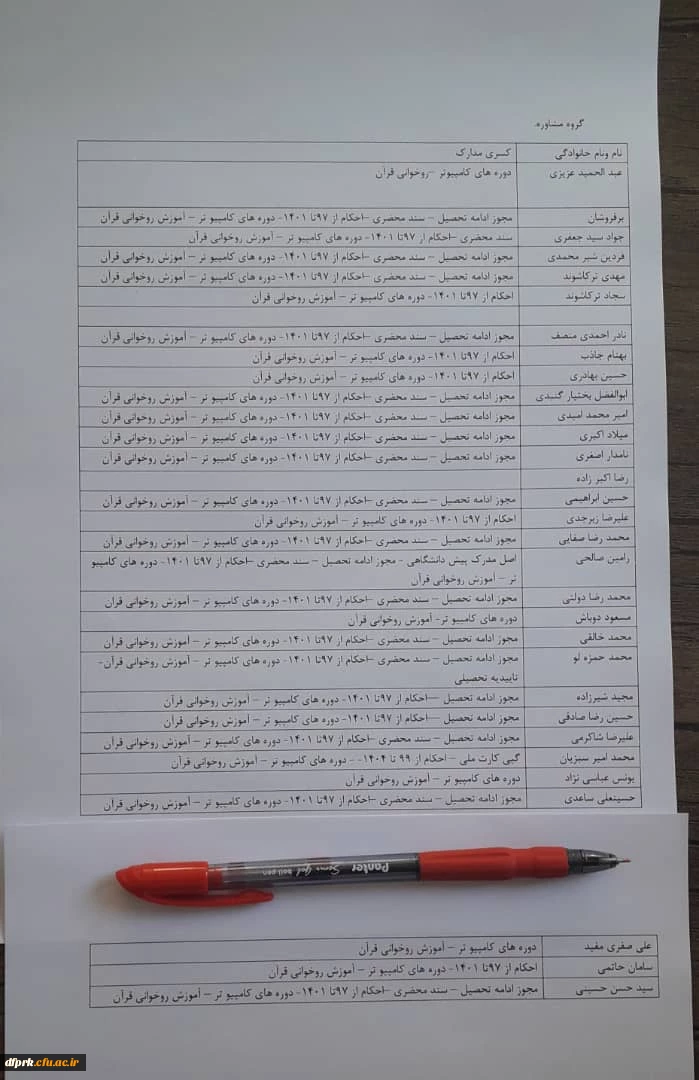 گروه مشاوره.
نام ونام خانوادگی کسری مدارک
عبد الحمید عزیزی دوره های کامپیوتر –روخوانی قرآن
برفروشان مجوز ادامه تحصیل – سند محضری –احکام از ۹۷تا ۱۴۰۱- دوره های کامپیو تر – آموزش روخوانی قرآن
جواد سید جعفری سند محضری –احکام از ۹۷تا ۱۴۰۱- دوره های کامپیو تر – آموزش روخوانی قرآن
فردین شیر محمدی مجوز ادامه تحصیل – سند محضری –احکام از ۹۷تا ۱۴۰۱- دوره های کامپیو تر – آموزش روخوانی قرآن
مهدی ترکاشوند مجوز ادامه تحصیل – سند محضری –احکام از ۹۷تا ۱۴۰۱- دوره های کامپیو تر – آموزش روخوانی قرآن
سجاد ترکاشوند احکام از ۹۷تا ۱۴۰۱- دوره های کامپیو تر – آموزش روخوانی قرآن
نادر احمدی منصف مجوز ادامه تحصیل – سند محضری –احکام از ۹۷تا ۱۴۰۱- دوره های کامپیو تر – آموزش روخوانی قرآن
بهنام جاذب احکام از ۹۷تا ۱۴۰۱- دوره های کامپیو تر – آموزش روخوانی قرآن
حسین بهادری احکام از ۹۷تا ۱۴۰۱- دوره های کامپیو تر – آموزش روخوانی قرآن
ابوالفضل بختیار گنبدی مجوز ادامه تحصیل – سند محضری –احکام از ۹۷تا ۱۴۰۱- دوره های کامپیو تر – آموزش روخوانی قرآن
امیر محمد امیدی مجوز ادامه تحصیل – سند محضری –احکام از ۹۷تا ۱۴۰۱- دوره های کامپیو تر – آموزش روخوانی قرآن
میلاد اکبری مجوز ادامه تحصیل – سند محضری –احکام از ۹۷تا ۱۴۰۱- دوره های کامپیو تر – آموزش روخوانی قرآن
نامدار اصغری مجوز ادامه تحصیل – سند محضری –احکام از ۹۷تا ۱۴۰۱- دوره های کامپیو تر – آموزش روخوانی قرآن
رضا اکبر زاده
حسین ابراهیمی مجوز ادامه تحصیل – سند محضری –احکام از ۹۷تا ۱۴۰۱- دوره های کامپیو تر – آموزش روخوانی قرآن
علیرضا زبرجدی احکام از ۹۷تا ۱۴۰۱- دوره های کامپیو تر – آموزش روخوانی قرآن
محمد رضا صفایی مجوز ادامه تحصیل – سند محضری –احکام از ۹۷تا ۱۴۰۱- دوره های کامپیو تر – آموزش روخوانی قرآن
رامین صالحی اصل مدرک پیش دانشگاهی - مجوز ادامه تحصیل – سند محضری –احکام از ۹۷تا ۱۴۰۱- دوره های کامپیو
تر – آموزش روخوانی قرآن
محمد رضا دولتی مجوز ادامه تحصیل – سند محضری –احکام از ۹۷تا ۱۴۰۱- دوره های کامپیو تر – آموزش روخوانی قران
مسعود دوباش دوره های کامپیو تر- آموزش روخوانی قرآن
محمد خالقی مجوز ادامه تحصیل – سند محضری –احکام از ۹۷تا ۱۴۰۱- دوره های کامپیو تر – آموزش روخوانی قرآن
محمد حمزه لو مجوز ادامه تحصیل – سند محضری –احکام از ۹۷تا ۱۴۰۱- دوره های کامپیو تر – آموزش روخوانی قرآن-
تاییدیه تحصیلی
مجید شیرزاده مجوز ادامه تحصیل –احکام از ۹۷تا ۱۴۰۱- دوره های کامپیو تر – آموزش روخوانی قرآن
حسین رضا صادقی مجوز ادامه تحصیل –احکام از ۹۷تا ۱۴۰۱- دوره های کامپیو تر – آموزش روخوانی قرآن
علیرضا شاکرمی مجوز ادامه تحصیل – سند محضری –احکام از ۹۷تا ۱۴۰۱- دوره های کامپیو تر – آموزش روخوانی قرآن
محمد امیر سبزیان گپی کارت ملی – احکام از ۹۹ تا ۱۴۰۴- - دوره های کامپیو تر – آموزش روخوانی قرآن
یونس عباسی نژاد دوره های کامپیو تر – آموزش روخوانی قرآن
حسینعلی ساعدی مجوز ادامه تحصیل – سند محضری –احکام از ۹۷تا ۱۴۰۱- دوره های کامپیو تر – آموزش روخوانی قرآن
Panter Semi Gel ball pen
علی صفری مفید دوره های کامپیو تر – آموزش روخوانی قرآن
سامان حاتمی احکام از ۹۷تا ۱۴۰۱- دوره های کامپیو تر – آموزش روخوانی قرآن
سید حسن حسینی مجوز ادامه تحصیل – سند محضری –احکام از ۹۷تا ۱۴۰۱- دوره های کامپیو تر – آموزش روخوانی قرآن
dfprk.cfu.ac.ir